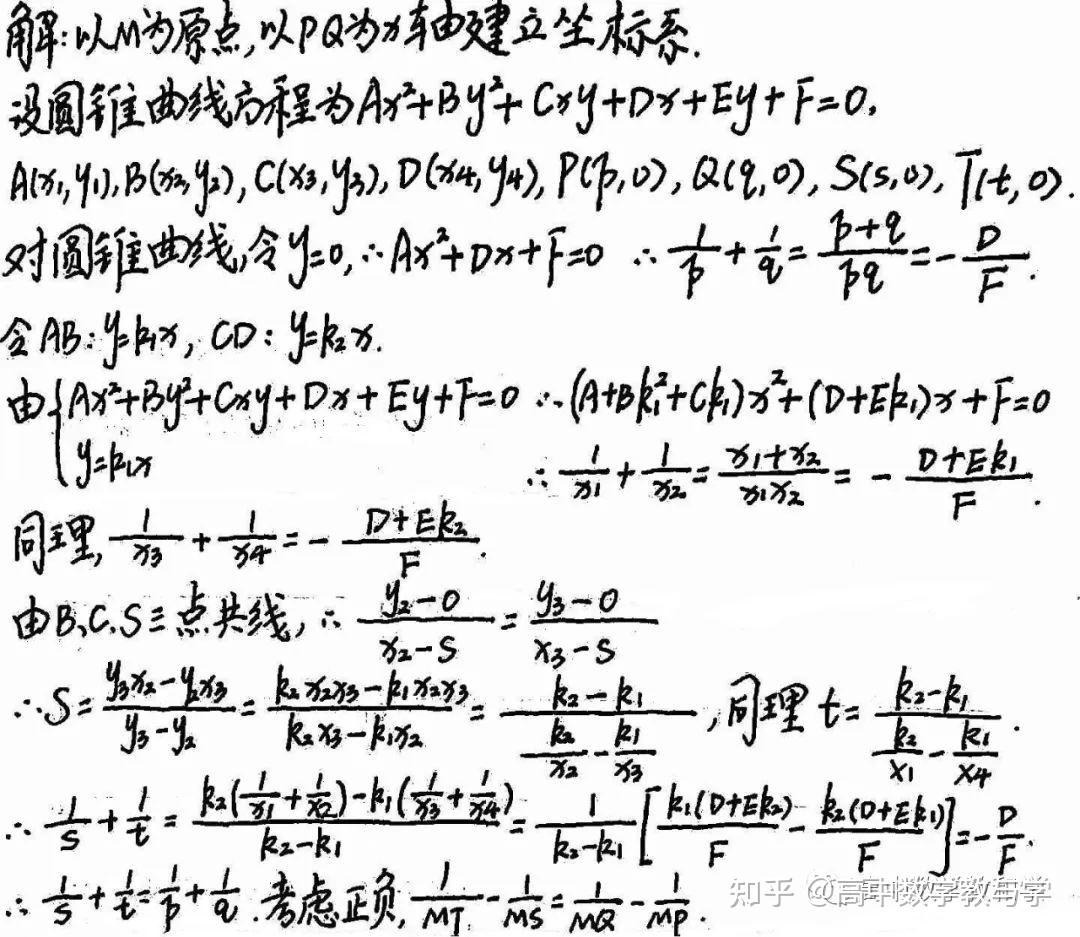 解:以M为原点,以PQ为x轴建立坐标系.
设圆锥曲线方程为Ax²+By²+Cxy+Dx+Ey+F=0,
A(x₁,y₁),B(x₂,y₂),C(x₃,y₃),D(x₄,y₄),P(p,0),Q(q,0),S(s,0),T(t,0).
对圆锥曲线,令y=0,∴Ax²+Dx+F=0 ∴1/p+1/q=(p+q)/pq=-D/F.
令AB:y=k₁x, CD:y=k₂x.
由{Ax²+By²+Cxy+Dx+Ey+F=0 ∴(A+Bk₁²+Ck₁)x²+(D+Ek₁)x+F=0
y=k₁x ∴1/x₁+1/x₂=(x₁+x₂)/x₁x₂=-(D+Ek₁)/F.
同理,1/x₃+1/x₄=-(D+Ek₂)/F.
由B、C、S三点共线,∴(y₂-0)/(x₂-s)=(y₃-0)/(x₃-s)
∴S=(y₃x₂-y₂x₃)/(y₃-y₂)=(k₂x₂x₃-k₁x₂x₃)/(k₂x₃-k₁x₂)=(k₂-k₁)/(k₂/x₂-k₁/x₃),同理t=(k₂-k₁)/(k₂/x₁-k₁/x₄).
∴1/s+1/t=(k₂(1/x₁+1/x₂)-k₁(1/x₃+1/x₄))/(k₂-k₁)=1/(k₂-k₁)[k₁(D+Ek₂)/F-k₂(D+Ek₁)/F]=-D/F.
∴1/s+1/t=1/p+1/q.考虑正负,1/MT-1/MS=1/MQ-1/MP.
知乎 @高中数学教与学